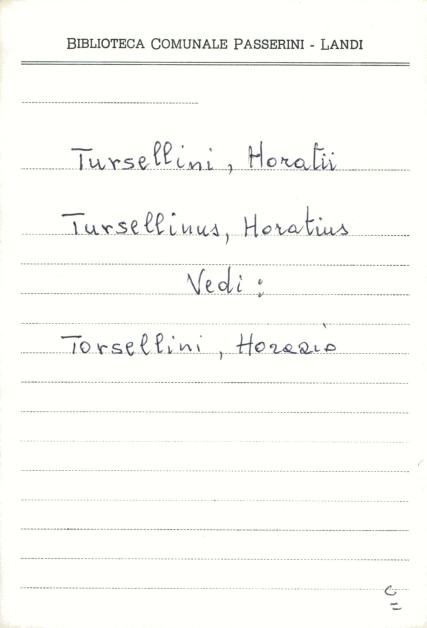 BIBLIOTECA COMUNALE PASSERINI - LANDI
Tursellini, Horatii
Tursellinus, Horatius
Vedi:
Torsellini, Horazio
C
=